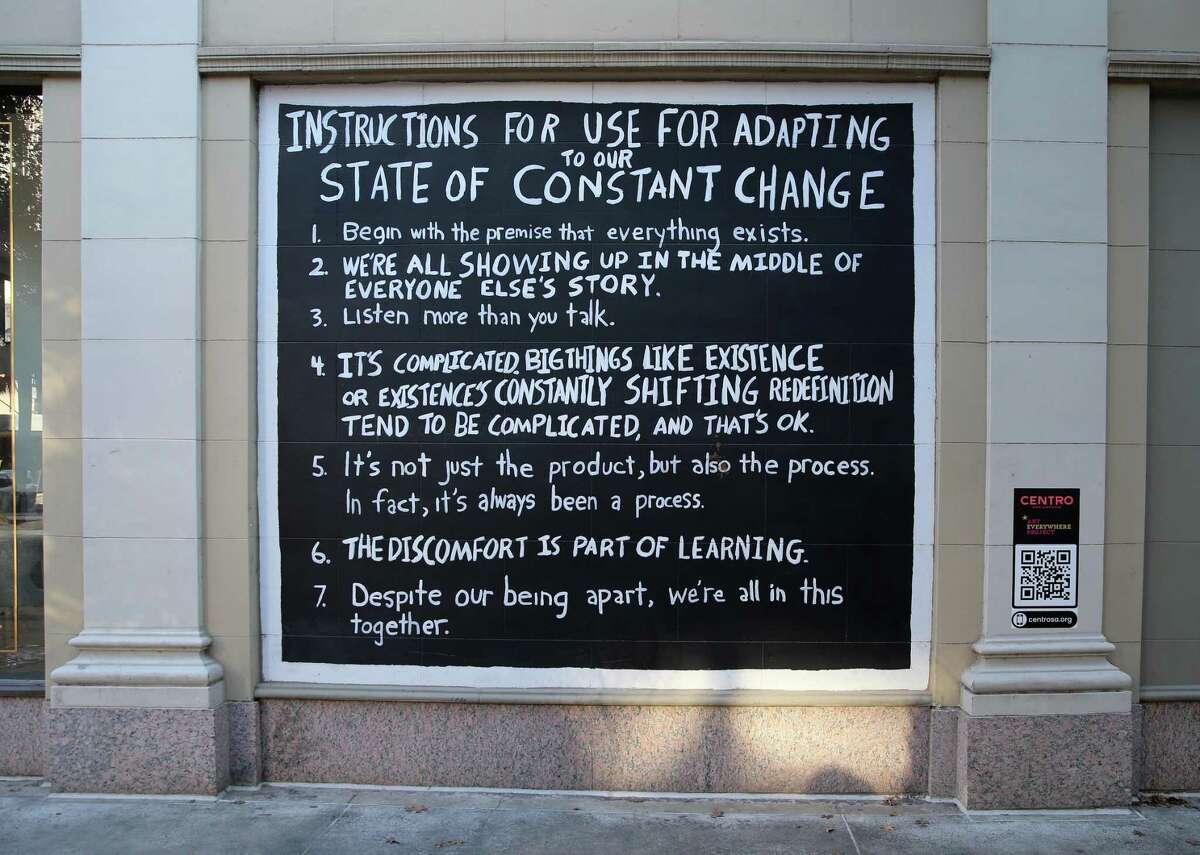 INSTRUCTIONS FOR USE FOR ADAPTING
TO OUR
STATE OF CONSTANT CHANGE
1. Begin with the premise that everything exists.
2. WE'RE ALL SHOWING UP IN THE MIDDLE OF
EVERYONE ELSE'S STORY.
3. Listen more than you talk.
4. IT'S COMPLICATED. BIG THINGS LIKE EXISTENCE
OR EXISTENCE'S CONSTANTLY SHIFTING REDEFINITION
TEND TO BE COMPLICATED, AND THAT'S OK.
5. It's not just the product, but also the process.
In fact, it's always been a process.
6. THE DISCOMFORT IS PART OF LEARNING.
7. Despite our being apart, we're all in this
together.
CENTRO
ART
EVERYWHERE
PROJECT
centrosa.org